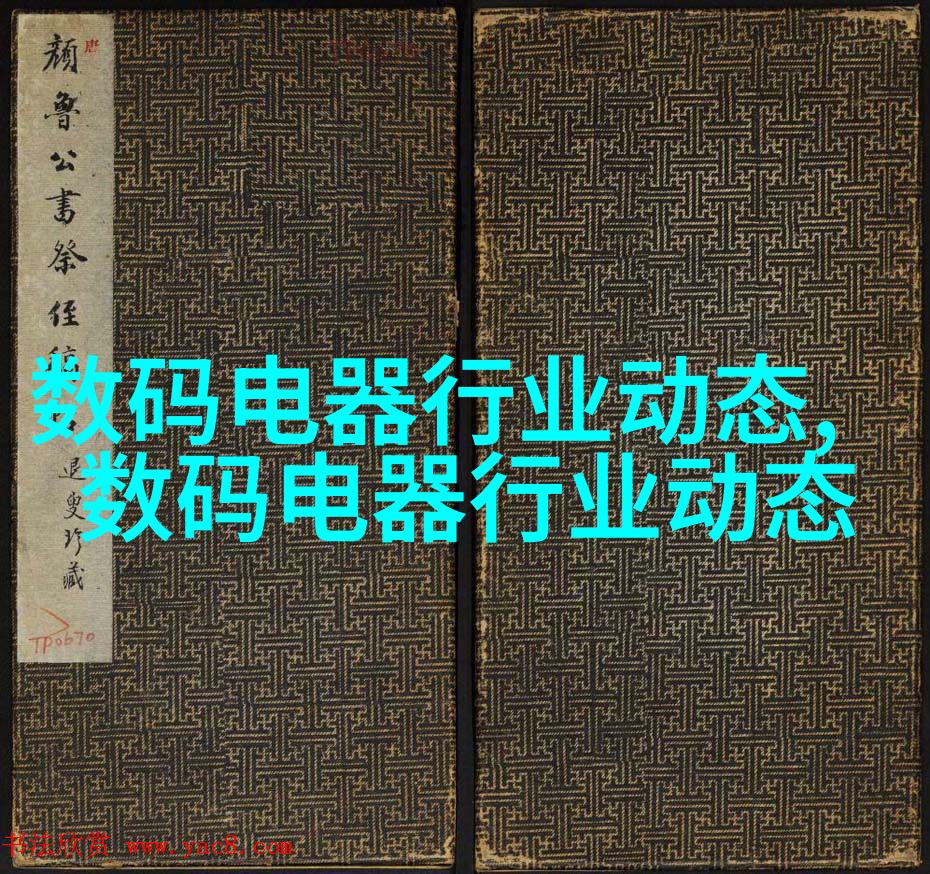 唐
顔魯公書祭侄稿
退叟珍藏
TP0670
数码电器行业动态,
数码电器行业动态
书法欣赏 www.yac8.com